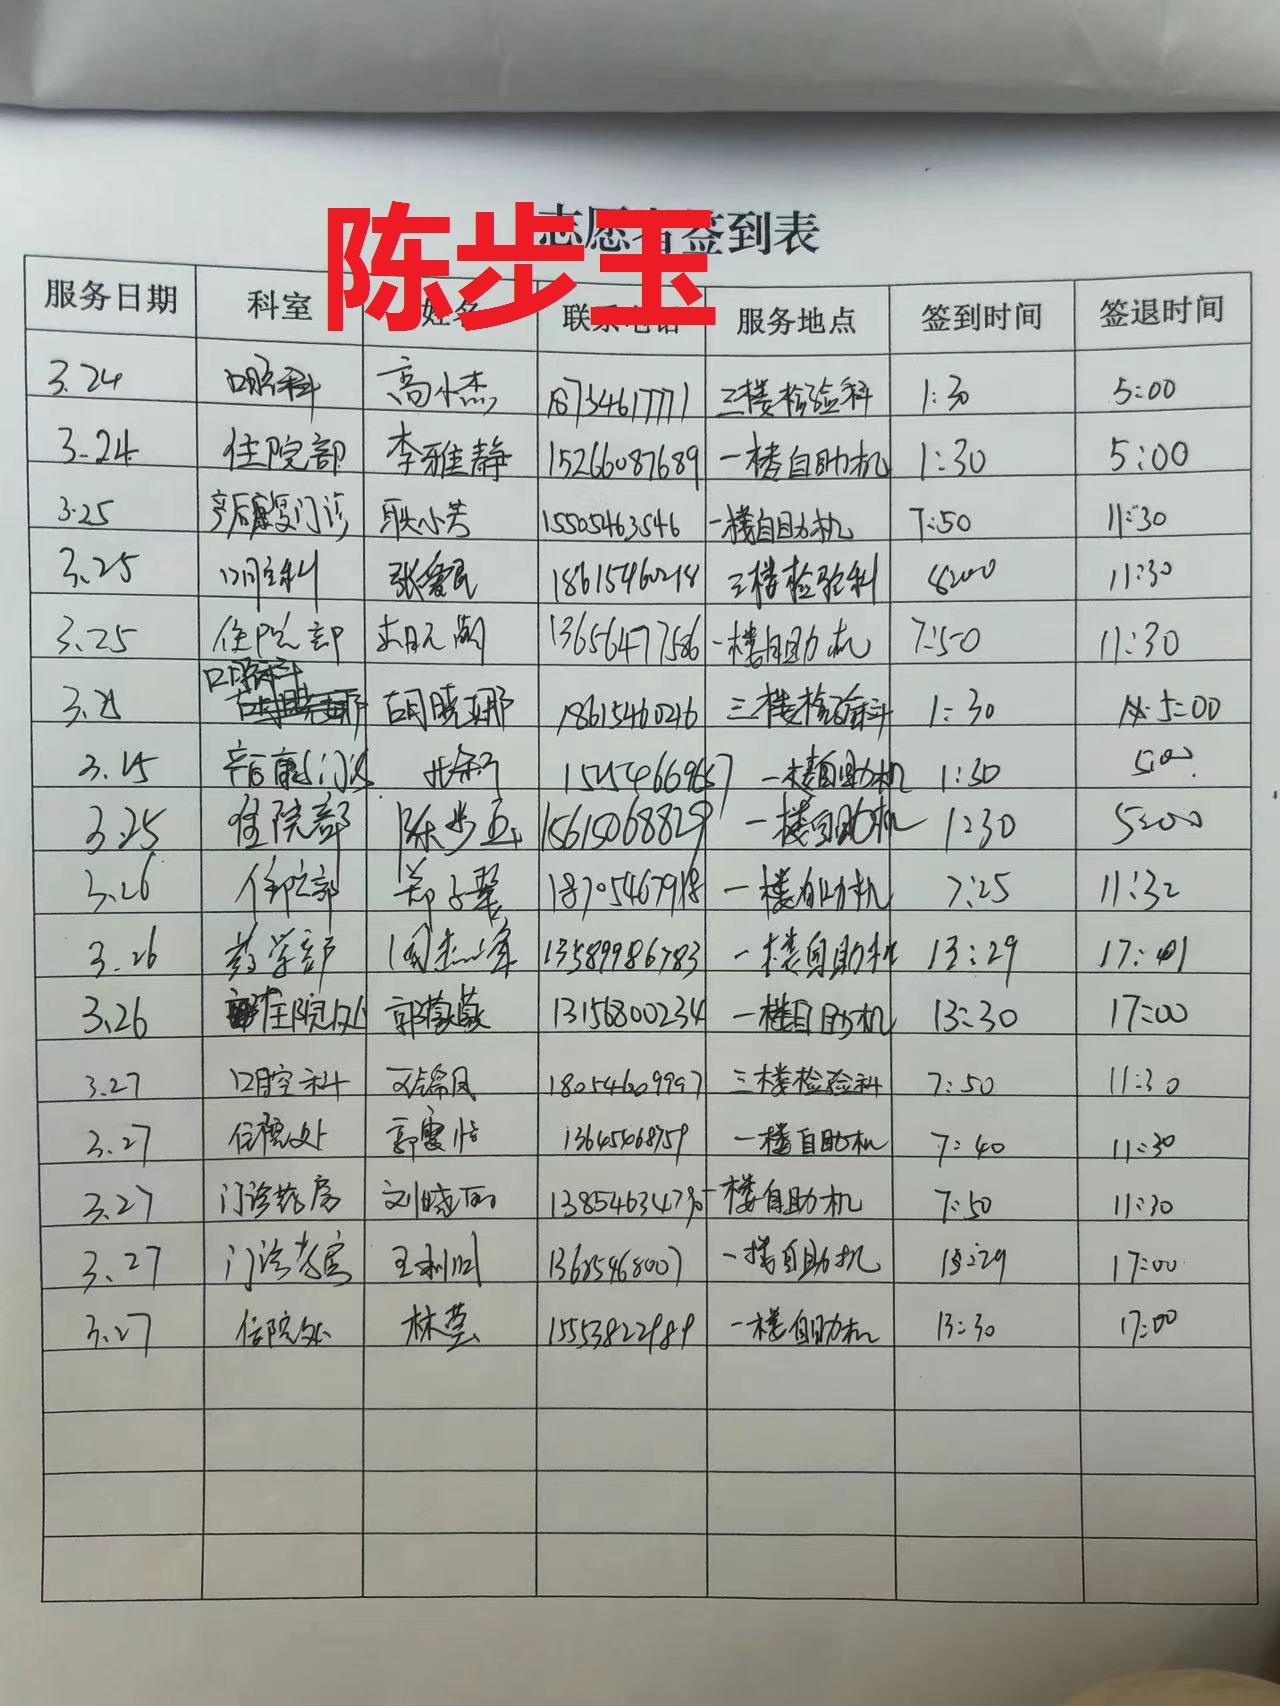 陈步玉
志愿者签到表
服务日期 科室 姓名 联系电话 服务地点 签到时间 签退时间
3.24 口腔科 高小杰 18734617771 三楼检验科 1:30 5:00
3.24 住院部 李雅静 15266087689 一楼自助机 1:30 5:00
3.25 产后康复门诊 耿小芳 15505463546 一楼自助机 7:50 11:30
3.25 口腔科 张爱民 18615460218 三楼检验科 8:00 11:30
3.25 住院部 13656477586 一楼自助机 7:50 11:30
3.25 口腔科 胡晓娜 18615460246 三楼检验科 1:30 5:00
3.25 产后康复门诊 一楼自助机 1:30 5:00
3.25 住院部 陈步玉 15615068829 一楼自助机 1:30 5:00
3.26 住院部 郑子翠 18705467918 一楼自助机 7:25 11:32
3.26 药学部 周杰峰 13589986783 一楼自助机 13:29 17:01
3.26 住院处 郭蒙蒙 13156800234 一楼自助机 13:30 17:00
3.27 口腔科 18054609997 三楼检验科 7:50 11:30
3.27 住院处 郭雯怡 13645068759 一楼自助机 7:40 11:30
3.27 门诊药房 刘晓丽 一楼自助机 7:50 11:30
3.27 门诊药房 王利明 13685468007 一楼自助机 13:29 17:00
3.27 住院处 林芸 15553822989 一楼自助机 13:30 17:00